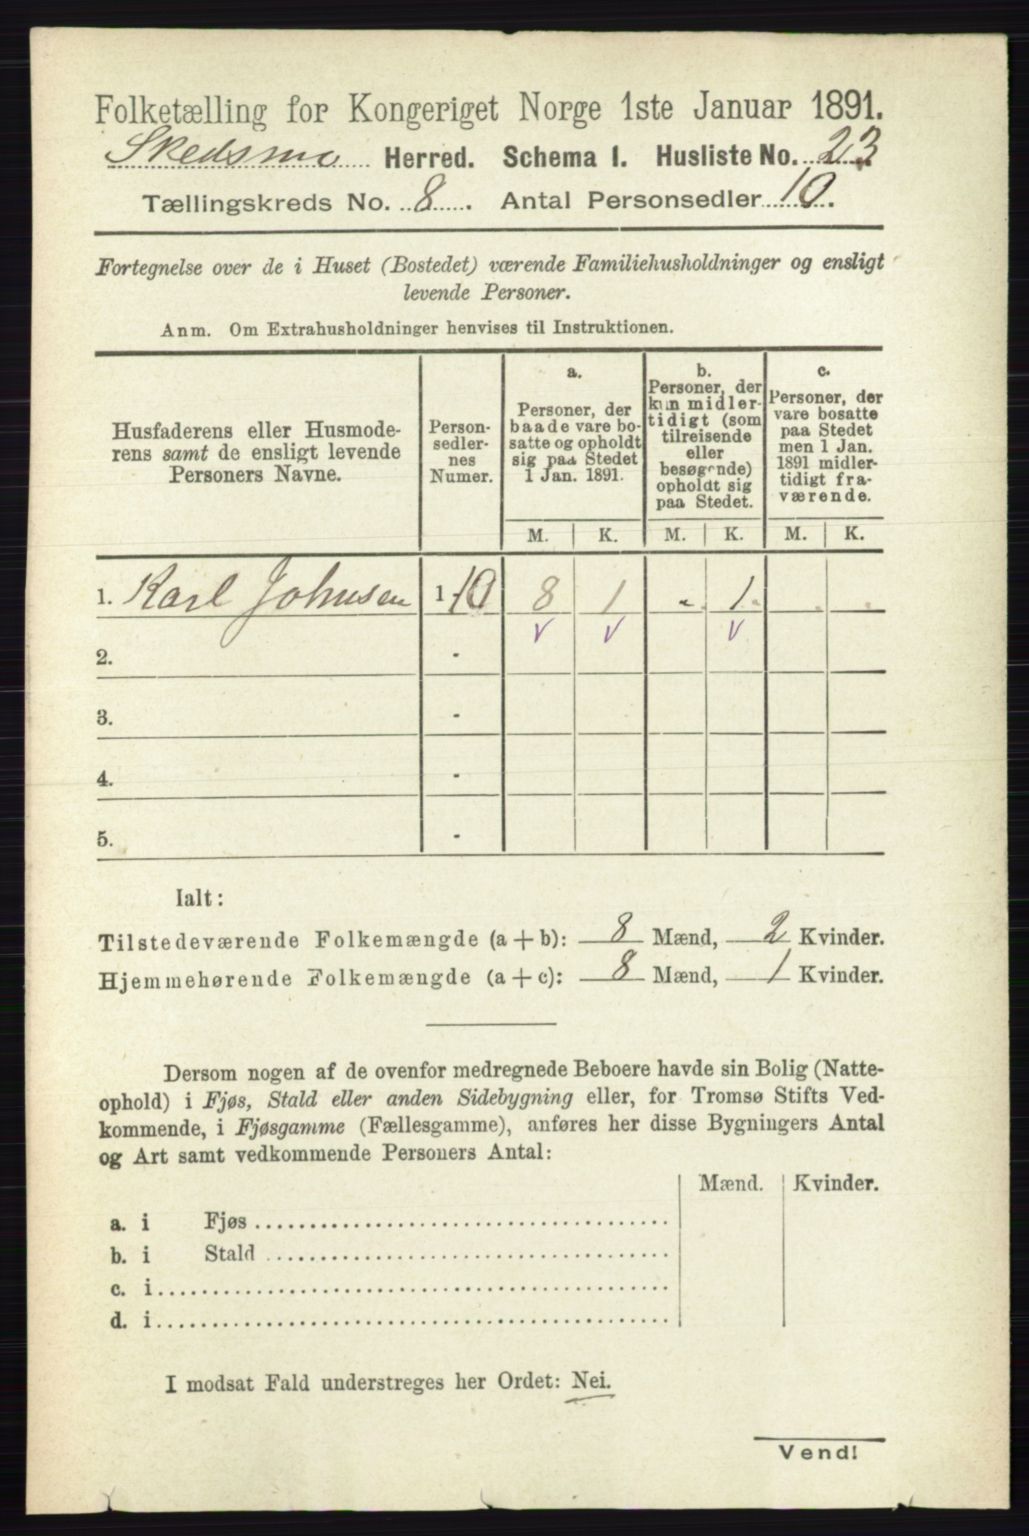 Folketælling for Kongeriget Norge 1ste Januar 1891.
Skedsmo Herred. Schema I. Husliste No. 23.
Tællingskreds No. 8. Antal Personsedler 10.
Fortegnelse over de i Huset (Bostedet) værende Familiehusholdninger og ensligt
levende Personer.
Anm. Om Extrahusholdninger henvises til Instruktionen.
Husfaderens eller Husmode-
rens samt de ensligt levende
Personers Navne.
Person-
sedler-
nes
Numer.
a.
Personer, der
baade vare bo-
satte og opholdt
sig paa Stedet
1 Jan. 1891.
b.
Personer, der
kun midler-
tidigt (som
tilreisende
eller
besøgende)
opholdt sig
paa Stedet.
c.
Personer, der
vare bosatte
paa Stedet
men 1 Jan.
1891 midler-
tidigt fra-
værende.
M. K. M. K. M. K.
1. Karl Johnsen 1-10 8 1 - 1 . .
2. -
3. -
4. -
5. -
Ialt:
Tilstedeværende Folkemængde (a + b): 8 Mænd, 2 Kvinder.
Hjemmehørende Folkemængde (a + c): 8 Mænd, 1 Kvinder.
Dersom nogen af de ovenfor medregnede Beboere havde sin Bolig (Natte-
ophold) i Fjøs, Stald eller anden Sidebygning eller, for Tromsø Stifts Ved-
kommende, i Fjøsgamme (Fællesgamme), anføres her disse Bygningers Antal
og Art samt vedkommende Personers Antal:
Mænd. Kvinder.
a. i Fjøs
b. i Stald
c. i
d. i
I modsat Fald understreges her Ordet: Nei.
Vend!